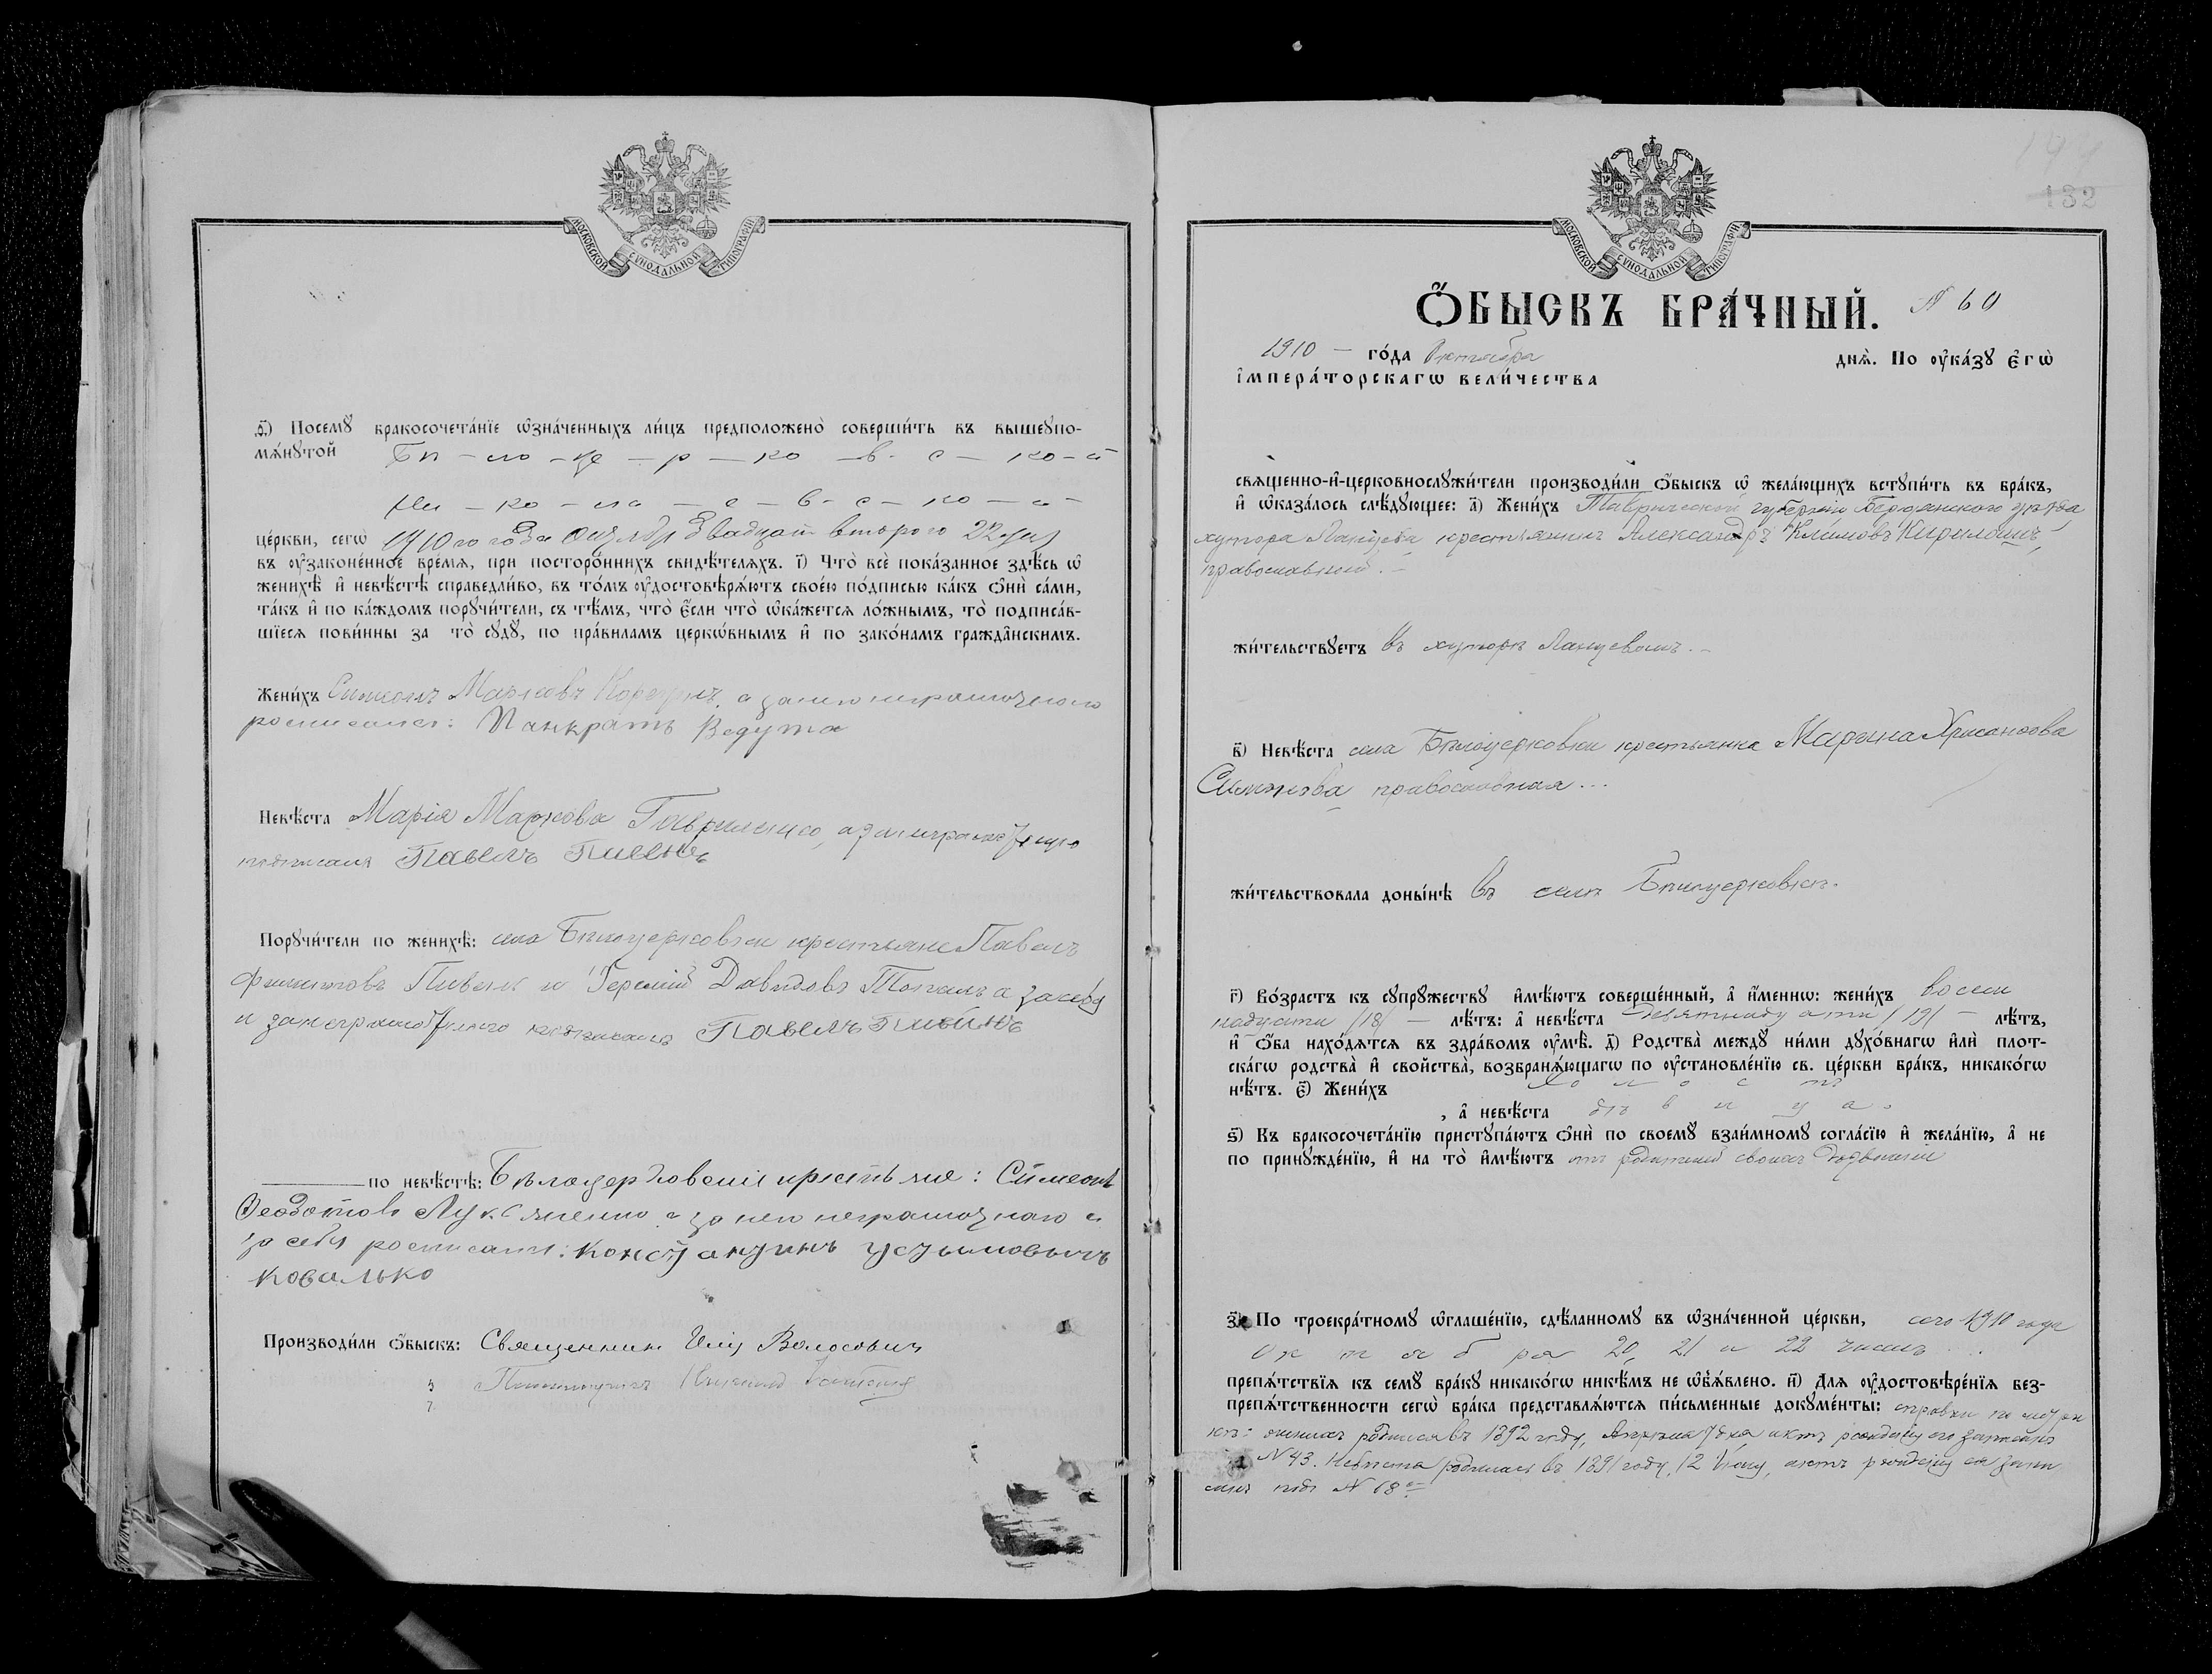 МОСКОВСКОЙ СѴНОДАЛЬНОЙ ТИПОГРАФІИ
ѳ҃) Посемꙋ бракосочета́нїе ѡ҆зна́ченныхъ ли́цъ предположено̀ соверши́ть въ вышеꙋпо-
мѧ́нꙋтой Бѣ – ло – це – р – ко – в – с – ко – й
Ни – ко – ла – е – в – с – ко – й –
це́ркви, сегѡ̀ 1910го года октября двадцать второго 22 дня
въ оу҆законе́нное вре́мѧ, при посторо́ннихъ свидѣ́телѧхъ. і҃) Что̀ всѐ пока́занное здѣ́сь ѡ҆
женихѣ̀ и҆ невѣ́стѣ справедли́во, въ то́мъ оу҆достовѣрѧ́ютъ свое́ю по́дписью ка́къ ѻ҆нѝ са́ми,
та́къ и҆ по ка́ждомъ порꙋчи́тели, съ тѣ́мъ, что̀ є҆́сли что̀ ѡ҆ка́жетсѧ ло́жнымъ, то̀ подписа́в-
шїесѧ пови́нны за то̀ сꙋдꙋ̀, по пра́виламъ церкѡ́внымъ и҆ по зако́намъ гражда́нскимъ.
Жени́хъ Симеонъ Марковъ а за него неграмотного
росписался: Панкратъ Ведута
Невѣ́ста Марія Маркова Гавриленко, а за неграмотную
подписался Павелъ Пивень
Порꙋчи́тели по женихѣ̀: села Бѣлоцерковки крестьяне Павелъ
Филиповъ Пивень и Іеремій Давидовъ а за себя
и за неграмотнаго подписался Павелъ Пивень
по невѣ́стѣ: Бѣлоцерковскіе крестьяне: Симеонъ
Ѳеодотовъ Лукьяненко а за него неграмотнаго и
за себя росписался: Константинъ Устымовычъ
Ковалько
Производи́ли ѻ҆́быскъ: Священникъ Илія Волосовичъ
Псаломщикъ
132
МОСКОВСКОЙ СѴНОДАЛЬНОЙ ТИПОГРАФІИ
Ѻ҆́БЫСКЪ БРА́ЧНЫЙ. № 60
1910 – го́да Октября днѧ̀. По оу҆ка́зꙋ є҆гѡ̀
і҆мпера́торскагѡ вели́чества
свѧще́нно-и҆-церковнослꙋжи́тели производи́ли ѻ҆́быскъ ѡ҆ жела́ющихъ встꙋпи́ть въ бра́къ,
и҆ ѡ҆каза́лось слѣ́дꙋющее: а҃) Жени́хъ Таврической губерніи Бердянского уѣзда,
хутора Ланцева крестьянинъ Александръ Климовъ Кирилашъ,
православный. –
жи́тельствꙋетъ въ хуторѣ Ланцевомъ. –
в҃) Невѣ́ста села Бѣлоцерковки крестьянка Марина Хрисанфова
православная...
жи́тельствовала доны́нѣ въ селѣ Бѣлоцерковкѣ.
г҃) Во́зрастъ къ сꙋпрꙋ́жествꙋ и҆мѣ́ютъ соверше́нный, а҆ и҆́меннѡ: жени́хъ восем
надцати /18/ – лѣ́тъ: а҆ невѣ́ста девятнадцати /19/ – лѣ́тъ,
и҆ ѻ҆́ба нахо́дѧтсѧ въ здра́вомъ оу҆мѣ̀. д҃) Родства̀ междꙋ̀ ни́ми дꙋхо́внагѡ и҆лѝ плот-
ска́гѡ родства̀ и҆ свойства̀, возбранѧ́ющагѡ по оу҆становле́нїю св. це́ркви бра́къ, никако́гѡ
нѣ́тъ. є҃) Жени́хъ х о л о с т ъ
, а҆ невѣ́ста д ѣ в и ц а.
ѕ҃) Къ бракосочета́нїю пристꙋпа́ютъ ѻ҆нѝ по своемꙋ̀ взаи́мномꙋ согла́сїю и҆ жела́нїю, а҆ не
по принꙋжде́нїю, и҆ на то̀ и҆мѣ́ютъ отъ родителей своихъ дозволеніе
з҃) По троекра́тномꙋ ѡ҆глаше́нїю, сдѣ́ланномꙋ въ ѡ҆зна́ченной це́ркви, сего 1910 года
О к т я б р я 20, 21 и 22 чиселъ...
препѧ́тствїѧ къ семꙋ̀ бра́кꙋ никако́гѡ никѣ́мъ не ѡ҆б̾ѧ́влено. и҃) Длѧ оу҆достовѣре́нїѧ без-
препѧ́тственности сегѡ̀ бра́ка представлѧ́ютсѧ пи́сьменные докꙋме́нты: справки по метри
кѣ: женихъ родился въ 1892 году, Апрѣля дня актъ рожденія его записанъ
№ 43. Невѣста родилась въ 1891 году, 12 Іюля, актъ рожденія ея запи
санъ подъ № 68